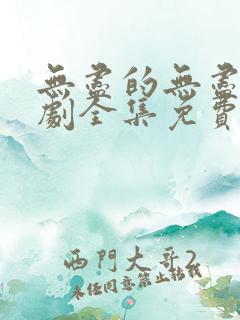 無盡的無盡
劇全集免費
西門大哥2
未經同意禁止轉載